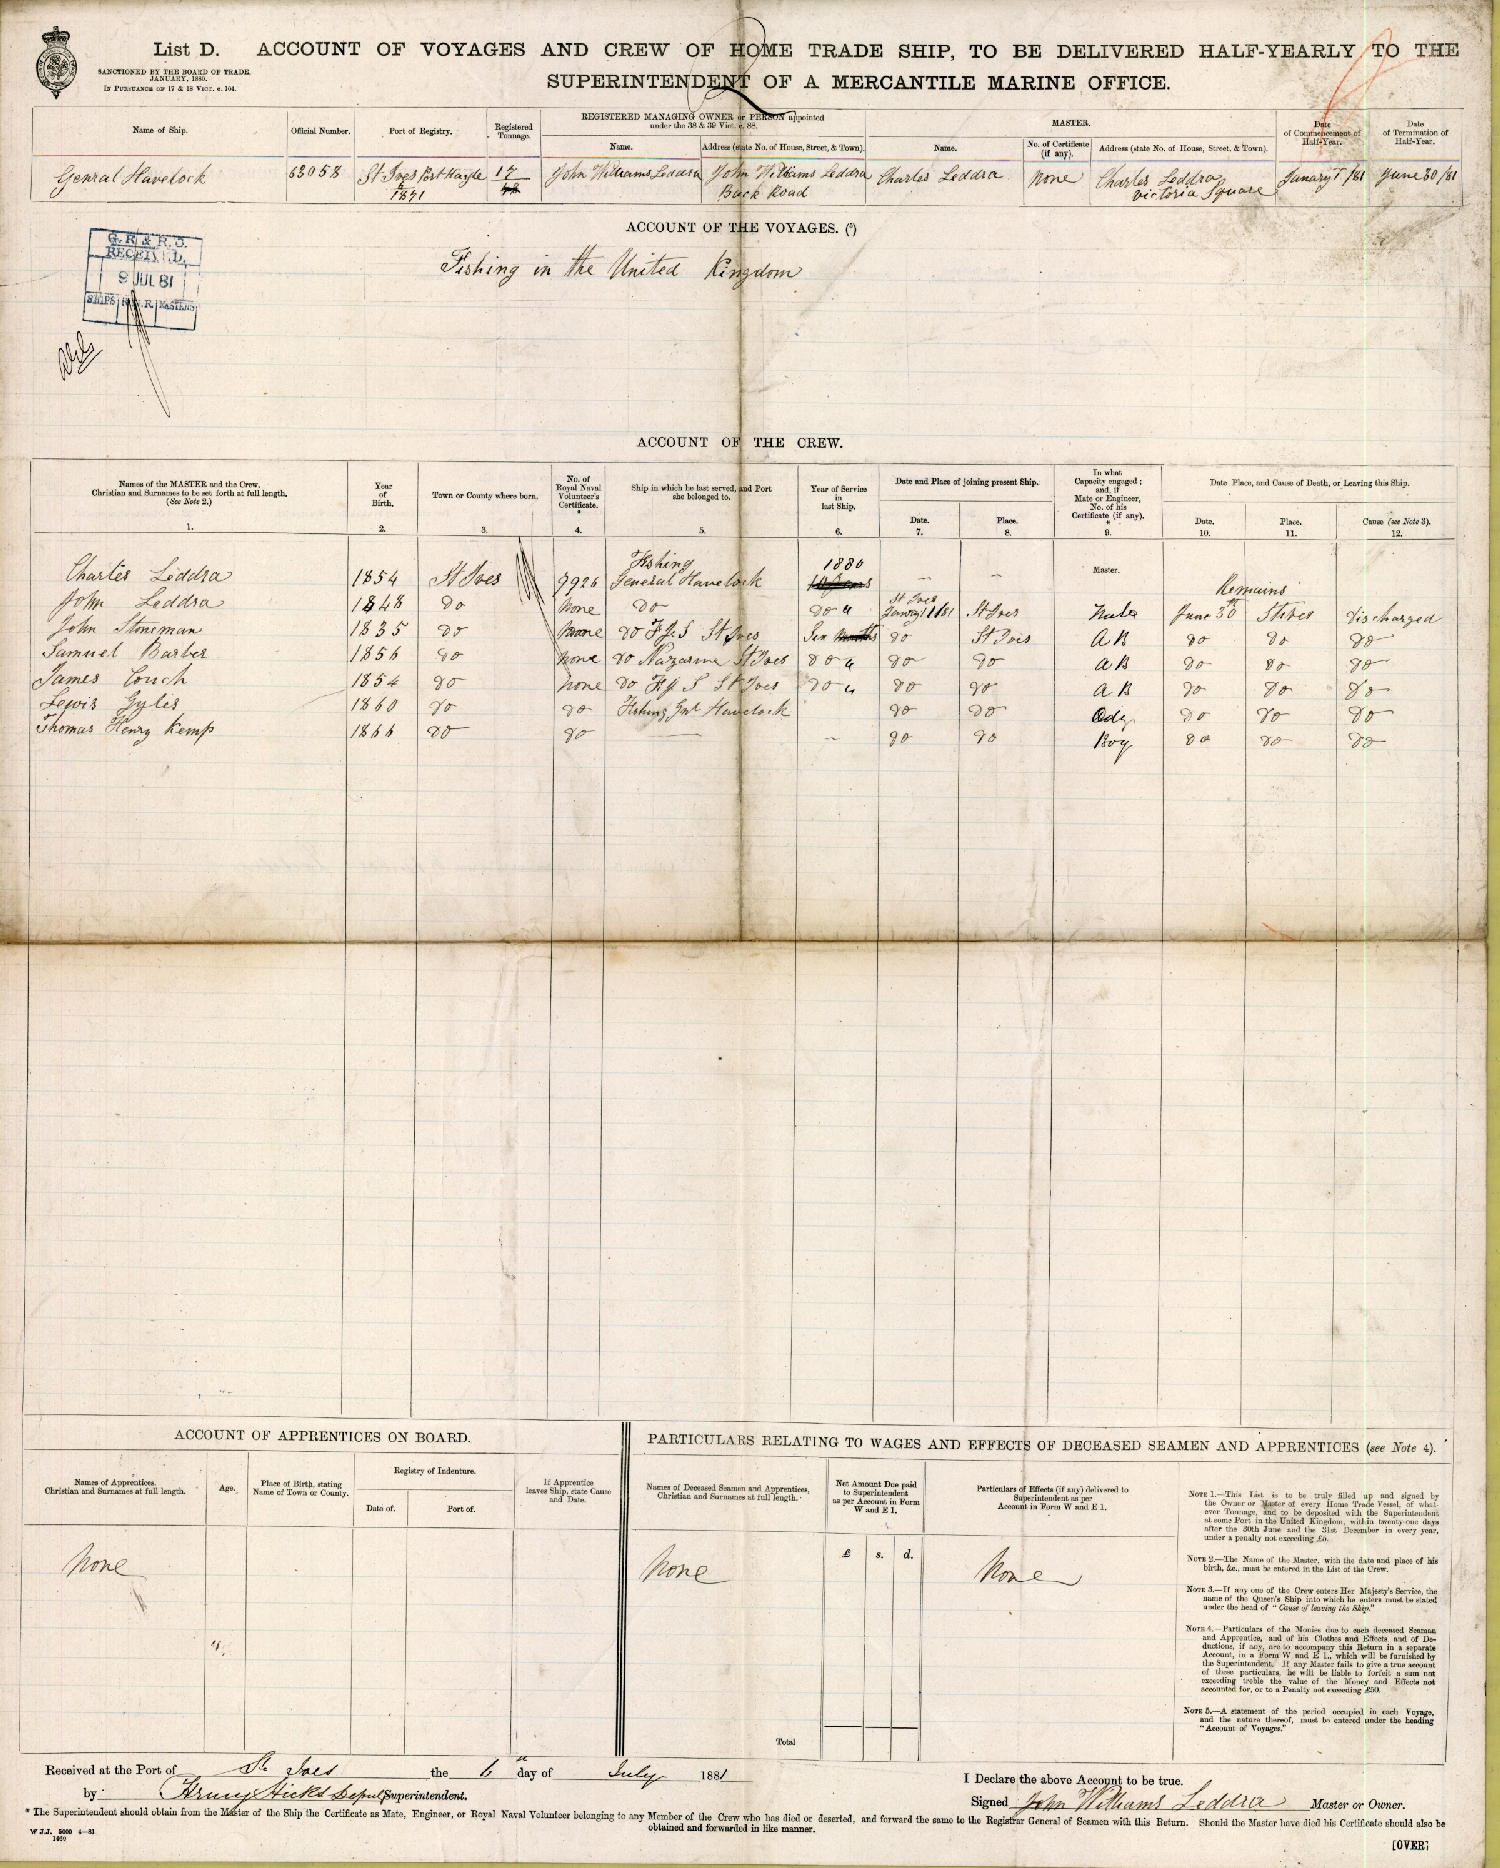 List D. ACCOUNT OF VOYAGES AND CREW OF HOME TRADE SHIP, TO BE DELIVERED HALF-YEARLY TO THE
SUPERINTENDENT OF A MERCANTILE MARINE OFFICE.
SANCTIONED BY THE BOARD OF TRADE,
JANUARY, 1880.
IN PURSUANCE OF 17 & 18 VICT. c. 104.
Name of Ship. Official Number. Port of Registry. Registered Tonnage. REGISTERED MANAGING OWNER or PERSON appointed under the 38 & 39 Vict. c. 88. MASTER. Date of Commencement of Half-Year. Date of Termination of Half-Year.
Name. Address (state No. of House, Street, & Town). Name. No. of Certificate (if any). Address (state No. of House, Street, & Town).
Genral Havelock 63058 St Ives Port Hayle 17 John Williams Leddra John Williams Leddra Charles Leddra None Charles Leddra January 1/81 June 30/81
1871 Back Road Victoria Square
ACCOUNT OF THE VOYAGES. (*)
G. R. & R. O.
RECEIVED,
9 JUL 81
SHIPS R. MASTERS
Fishing in the United Kingdom
ACCOUNT OF THE CREW.
Names of the MASTER and the Crew. Christian and Surnames to be set forth at full length. (See Note 2.) Year of Birth. Town or County where born. No. of Royal Naval Volunteer's Certificate. * Ship in which he last served, and Port she belonged to. Year of Service in last Ship. Date and Place of joining present Ship. In what Capacity engaged; and, if Mate or Engineer, No. of his Certificate (if any). * Date Place, and Cause of Death, or Leaving this Ship.
Date. Place. Date. Place. Cause (see Note 3).
1. 2. 3. 4. 5. 6. 7. 8. 9. 10. 11. 12.
Fishing 1880
Charles Leddra 1854 St Ives 7926 General Havelock – – Master. Remains
John Leddra 1848 do None do do " St Ives January 1 1881 St Ives Mate June 30 St Ives Discharged
John Stoneman 1835 do None do St Ives Six do St Ives A B do do do
Samuel Barber 1856 do None do Nazarine St Ives do " do do A B do do do
James Couch 1854 do None do St Ives do " do do A B do do do
Lewis Gyles 1860 do do Fishing Gnl Havelock do do Ody do do do
Thomas Henry Kemp 1866 do do — – do do Boy do do do
ACCOUNT OF APPRENTICES ON BOARD.
PARTICULARS RELATING TO WAGES AND EFFECTS OF DECEASED SEAMEN AND APPRENTICES (see Note 4).
Names of Apprentices. Christian and Surnames at full length. Age. Place of Birth, stating Name of Town or County. Registry of Indenture. If Apprentice leaves Ship, state Cause and Date.
Date of. Port of.
Names of Deceased Seamen and Apprentices, Christian and Surnames at full length. Net Amount Due paid to Superintendent as per Account in Form W and E 1. Particulars of Effects (if any) delivered to Superintendent as per Account in Form W and E 1.
£ s. d.
None None None
Total
NOTE 1.—This List is to be truly filled up and signed by
the Owner or Master of every Home Trade Vessel, of what-
ever Tonnage, and to be deposited with the Superintendent
at some Port in the United Kingdom, within twenty-one days
after the 30th June and the 31st December in every year,
under a penalty not exceeding £5.
NOTE 2.—The Name of the Master, with the date and place of his
birth, &c., must be entered in the List of the Crew.
NOTE 3.—If any one of the Crew enters Her Majesty's Service, the
name of the Queen's Ship into which he enters must be stated
under the head of "Cause of leaving the Ship."
NOTE 4.—Particulars of the Monies due to each deceased Seaman
and Apprentice, and of his Clothes and Effects and of De-
ductions, if any, are to accompany this Return in a separate
Account, in a Form W and E 1., which will be furnished by
the Superintendent. If any Master fails to give a true account
of these particulars, he will be liable to forfeit a sum not
exceeding treble the value of the Money and Effects not
accounted for, or to a Penalty not exceeding £50.
NOTE 5.—A statement of the period occupied in each Voyage,
and the nature thereof, must be entered under the heading
"Account of Voyages."
Received at the Port of St. Ives the 6th day of July 1881
by Henry Hicks Deputy Superintendent.
I Declare the above Account to be true.
Signed John Williams Leddra Master or Owner.
* The Superintendent should obtain from the Master of the Ship the Certificate as Mate, Engineer, or Royal Naval Volunteer belonging to any Member of the Crew who has died or deserted, and forward the same to the Registrar General of Seamen with this Return. Should the Master have died his Certificate should also be
obtained and forwarded in like manner.
W J.J. 5000 4—81
[OVER]